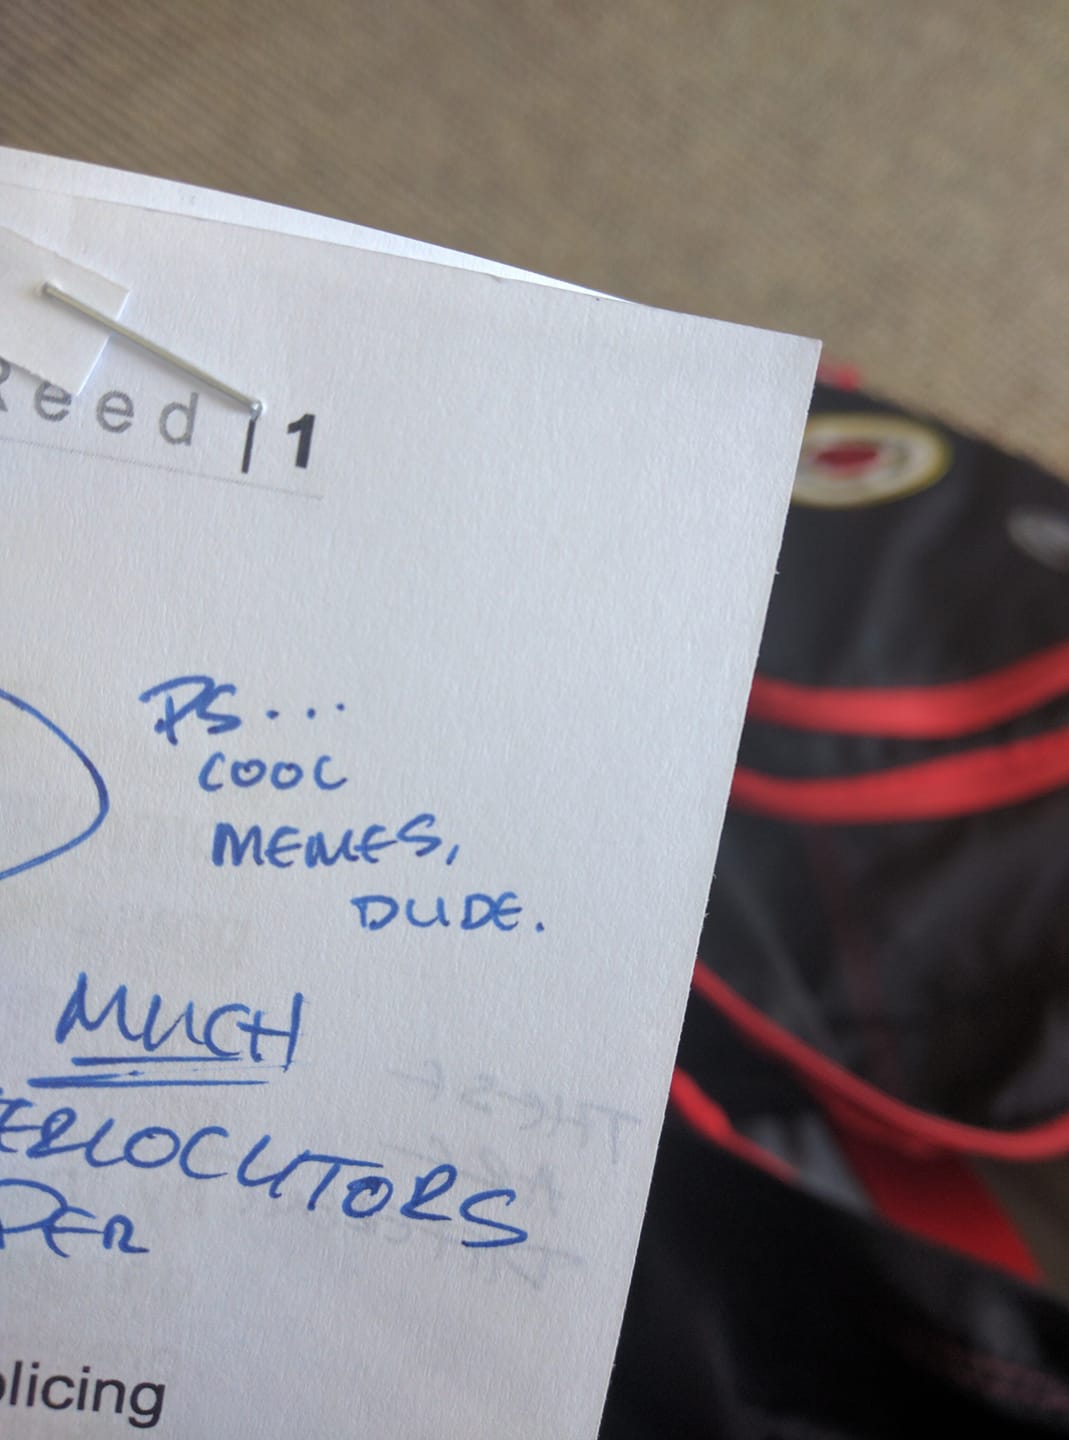 Reed | 1
PS...
COOL
MEMES,
DUDE.
MUCH
ERLOCUTORS
PER
plicing
THESE
ARE